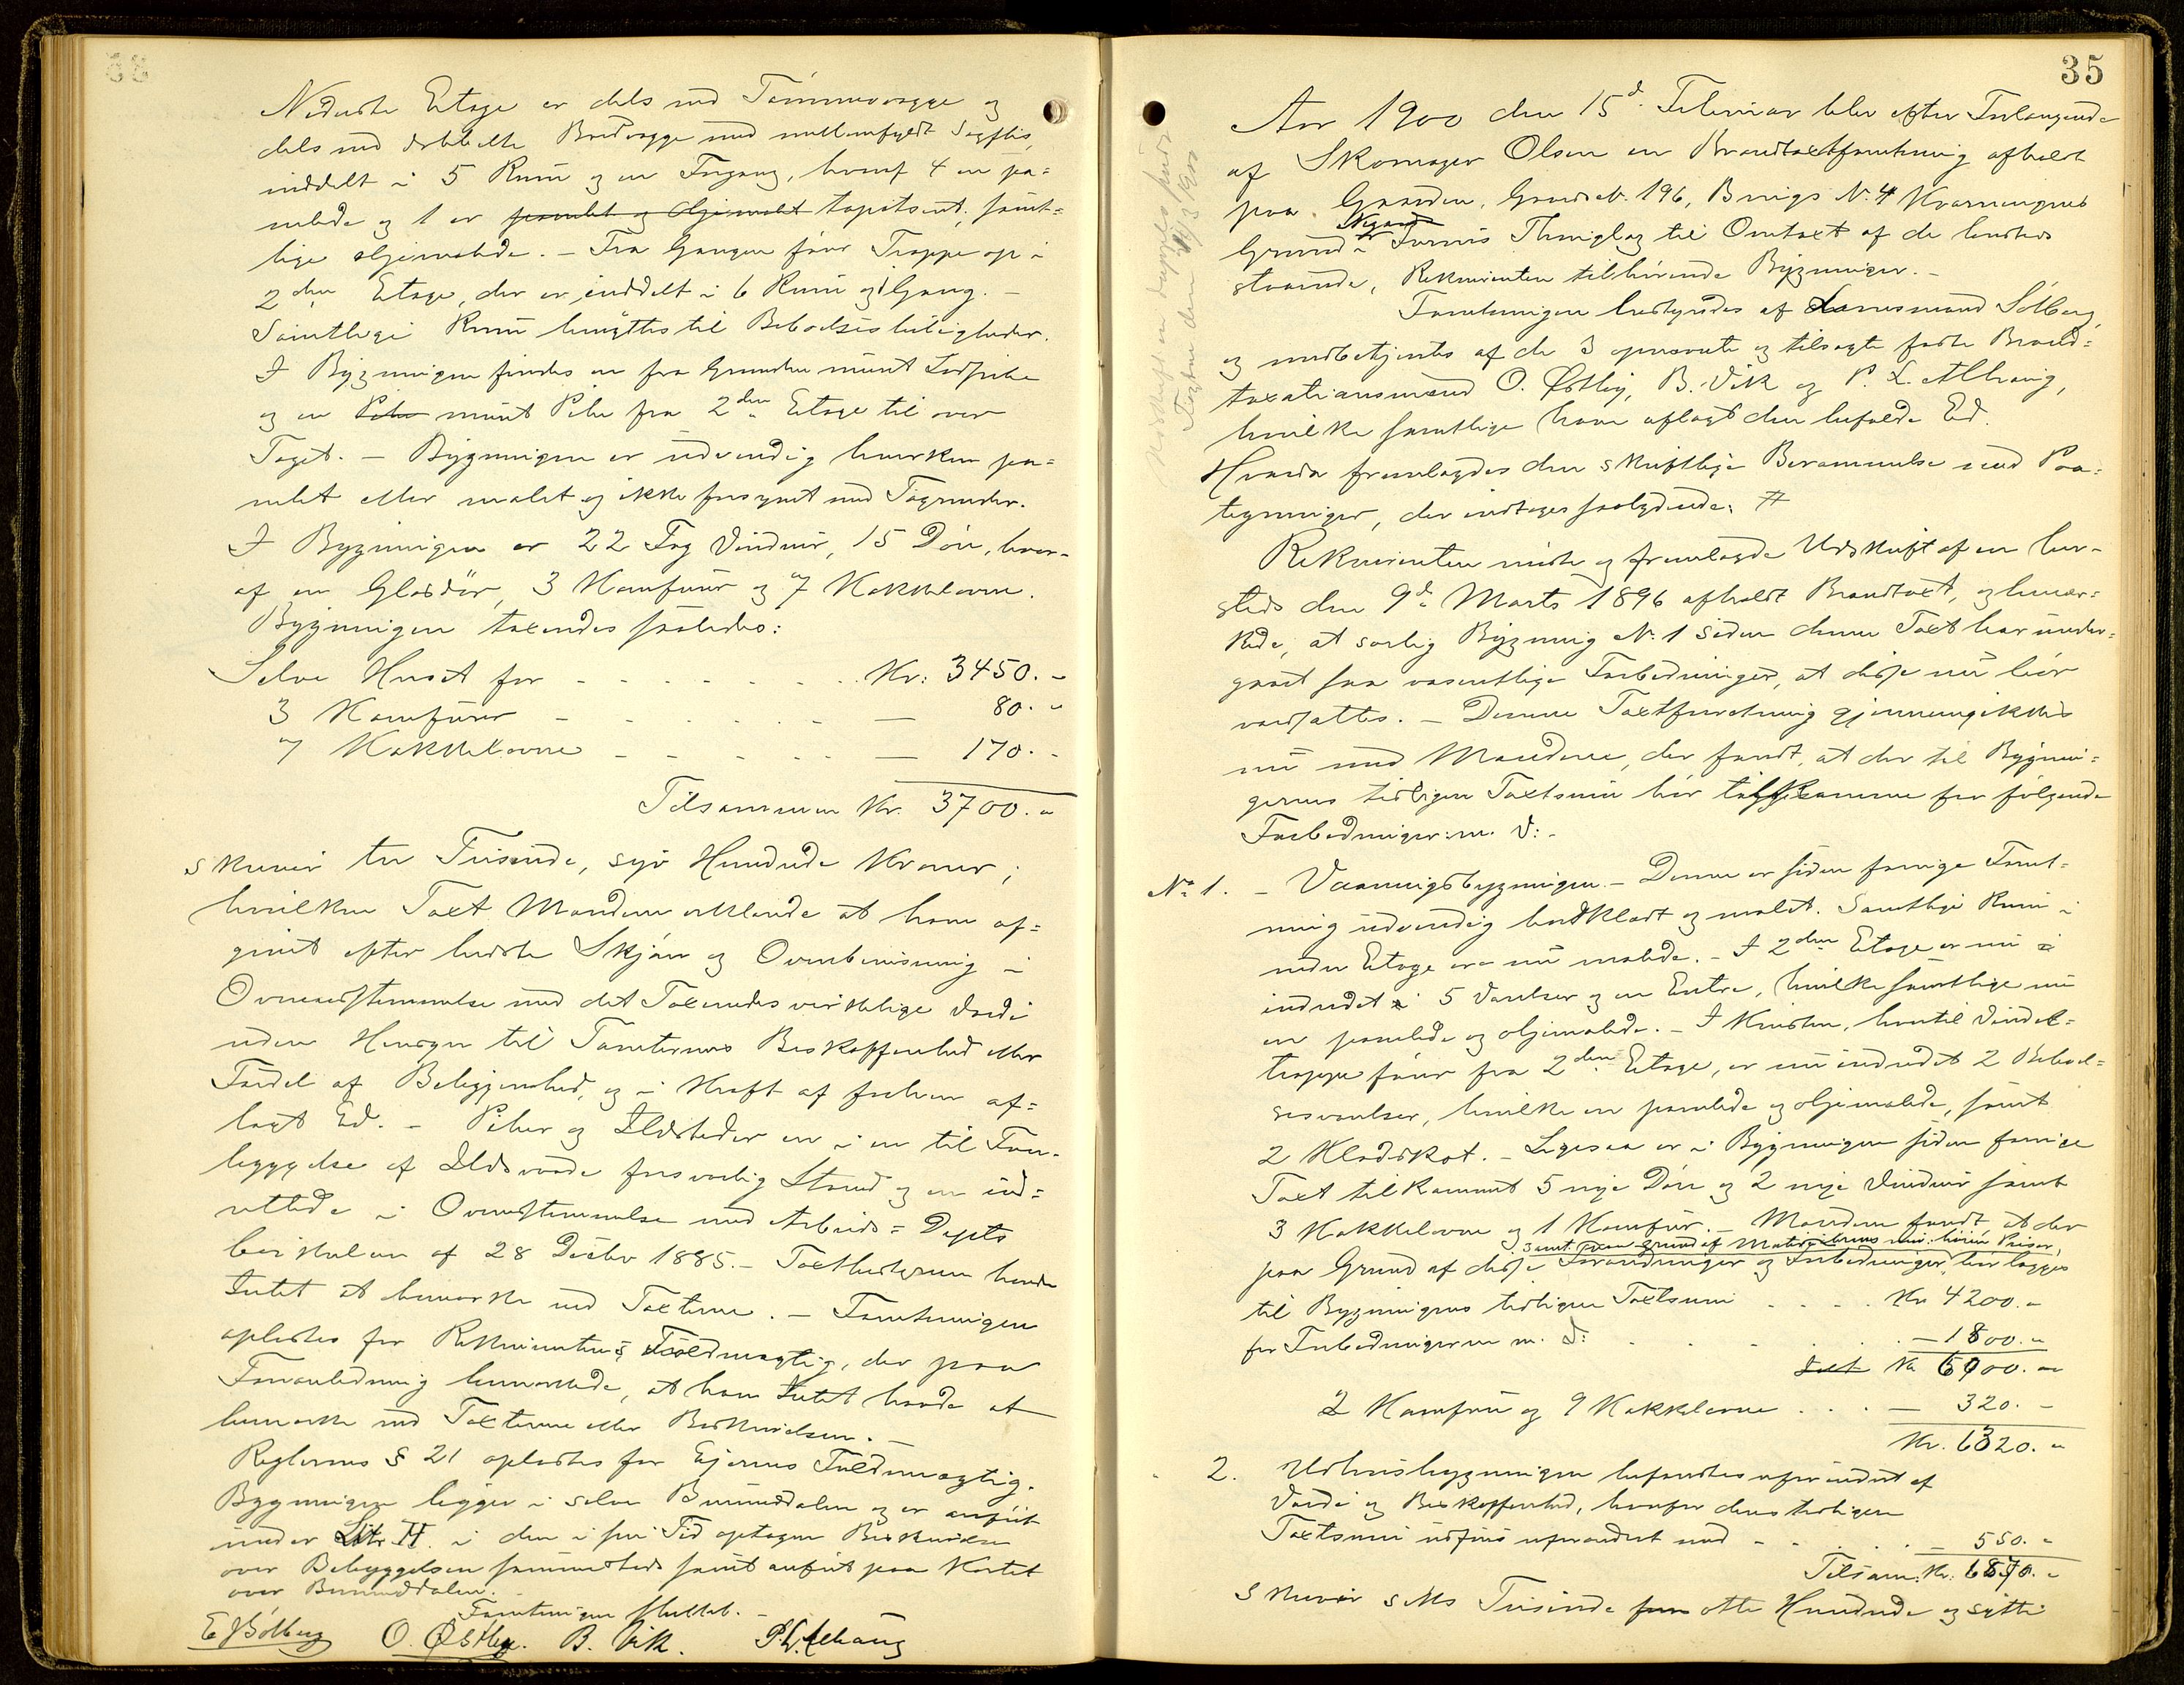 Nederste Etage er dels med Tømmervægge og
dels med dobbelte Bordvægge med mellemfyldt Sagflis,
inddelt i 5 Rum og en Indgang, hvoraf 4 er pa=
nelede og 1 er panelet og oljemalet tapetseret, samt=
lige oljemalede. – Fra Gangen fører Trappe op i
2den Etage, der er inddelt i 6 Rum og 1 Gang. –
Samtlige Rum benyttes til Beboelsesleiligheder.
I Bygningen findes en fra Grunden muret
og en Pibe muret Pibe fra 2den Etage til over
Taget. – Bygningen er udvendig hverken pa=
nelet eller malet og ikke forsynet med Tagrender.
I Bygningen er 22 Fag Vinduer, 15 Døre, hvor-
af en Glasdør, 3 Komfurer og 7 Kakkelovne.
Bygningen taxeredes saaledes:
Selve Huset for - - - - - - Kr: 3450. -
3 Komfurer - - - - - — 80. -
7 Kakkelovne - - - - - — 170. -
Tilsammen Kr. 3700. -
skriver tre Tusinde, syv Hundrede Kroner;
hvilken Taxt Mændene erklærede at have af=
givet efter bedste Skjøn og Overbevisning i
Overensstemmelse med det Taxeredes virkelige Værdi
uden Hensyn til Tomternes Beskaffenhed eller
Fordel af Beliggenhed, og i Kraft af forhen af=
lagt Ed. – Piber og Ildsteder er i en til Fore-
byggelse af Ildsvaade forsvarlig Stand og er ind=
rettede i Overensstemmelse med Arbeids=Depts
Cirkulære af 28 Decbr 1885. – Taxtbestyreren havde
Intet at bemærke ved Taxterne. – Forretningen
oplæstes for Rekvirentens Fuldmægtig, der paa
Foranledning bemærkede, at han Intet havde at
bemærke ved Taxterne eller Beskrivelsen. –
Reglernes § 21 oplæstes for Ejerens Fuldmægtig.
Bygningen ligger i selve Brumunddalen og er anført
under Litr. H. i den i sin Tid optagne Beskrivelse
over Bebyggelsen sammesteds samt anført paa Kartet
over Brumunddalen.
Forretningen sluttet. –
E Sølberg O. Østby. B. Vik. P. L. Alhaug
35
Aar 1900 den 15d. Februar blev efter Forlangende
af Skomager Olsen en Brandtaxtforretning afholdt
paa Gaarden, Gaards N. 196, Brugs N. 4 Kvernengens
Nygaard
Grund i Furnes Thinglag til Omtaxt af de bemeldte
staaende, Rekvirenten tilhørende Bygninger. –
Forretningen bestyredes af Lensmand Sølberg,
og medbetjentes af de 3 opnævnte og tilsagte faste Brand=
taxationsmænd O. Østby, B. Vik og P. L. Alhaug,
hvilke samtlige have aflagt den befalede Ed.
Hvorda fremlagdes den skriftlige Berammelse med Paa=
tegninger, der indtages saalydende: #
Rekvirenten mødte og fremlagde Udskrift af en her-
steds den 9de Marts 1896 afholdt Brandtaxt, og bemær=
kede, at særlig Bygning N: 1 siden denne Taxt har under=
gaaet saa væsentlige Forbedringer, at disse nu bør
værdsættes. – Denne Taxtforretning gjennemgikkes
nu med Mændene, der fandt, at der til Bygnin=
gernes tidligere Taxtsum bør tilkomme for følgende
Forbedringer: m. V: -
No 1. – Vaaningsbygningen. – Denne er siden forrige Forret=
ning udvendig bordklædt og malet. Samtlige Rum i
nedre Etage ere nu malede. – I 2den Etage er nu
indredet i 5 Værelser og en Entre, hvilke samtlige nu
er panelede og oljemalede. – I Kvisten, hvortil Vindel=
trappe fører fra 2den Etage, er nu indredet 2 Beboel=
sesværelser, hvilke er panelede og oljemalede, samt
2 Klædskot. – Ligesaa er i Bygningen siden forrige
Taxt tilkommet 5 nye Døre og 2 nye Vinduer samt
3 Kakkelovne og 1 Komfur. – Mændene fandt, at der
samt paa Grund af Materialernes nu høiere Priser,
paa Grund af disse Forandringer og Forbedringer bør lægges
til Bygningens tidligere Taxtsum . . . . Kr 4200. -
for Forbedringerne m. V: . . . . — 1800. -
Kr 6000. -
2 Komfur og 9 Kakkelovne . . . — 320. -
Kr. 6320. -
2. Udhusbygningen befandtes uforandret af
Værdi og Beskaffenhed, hvorfor dens tidligere
Taxtsum udføres uforandret med - . . . — 550. -
Tilsam. Kr. 6870. -
skriver seks Tusinde otte Hundrede og sytti